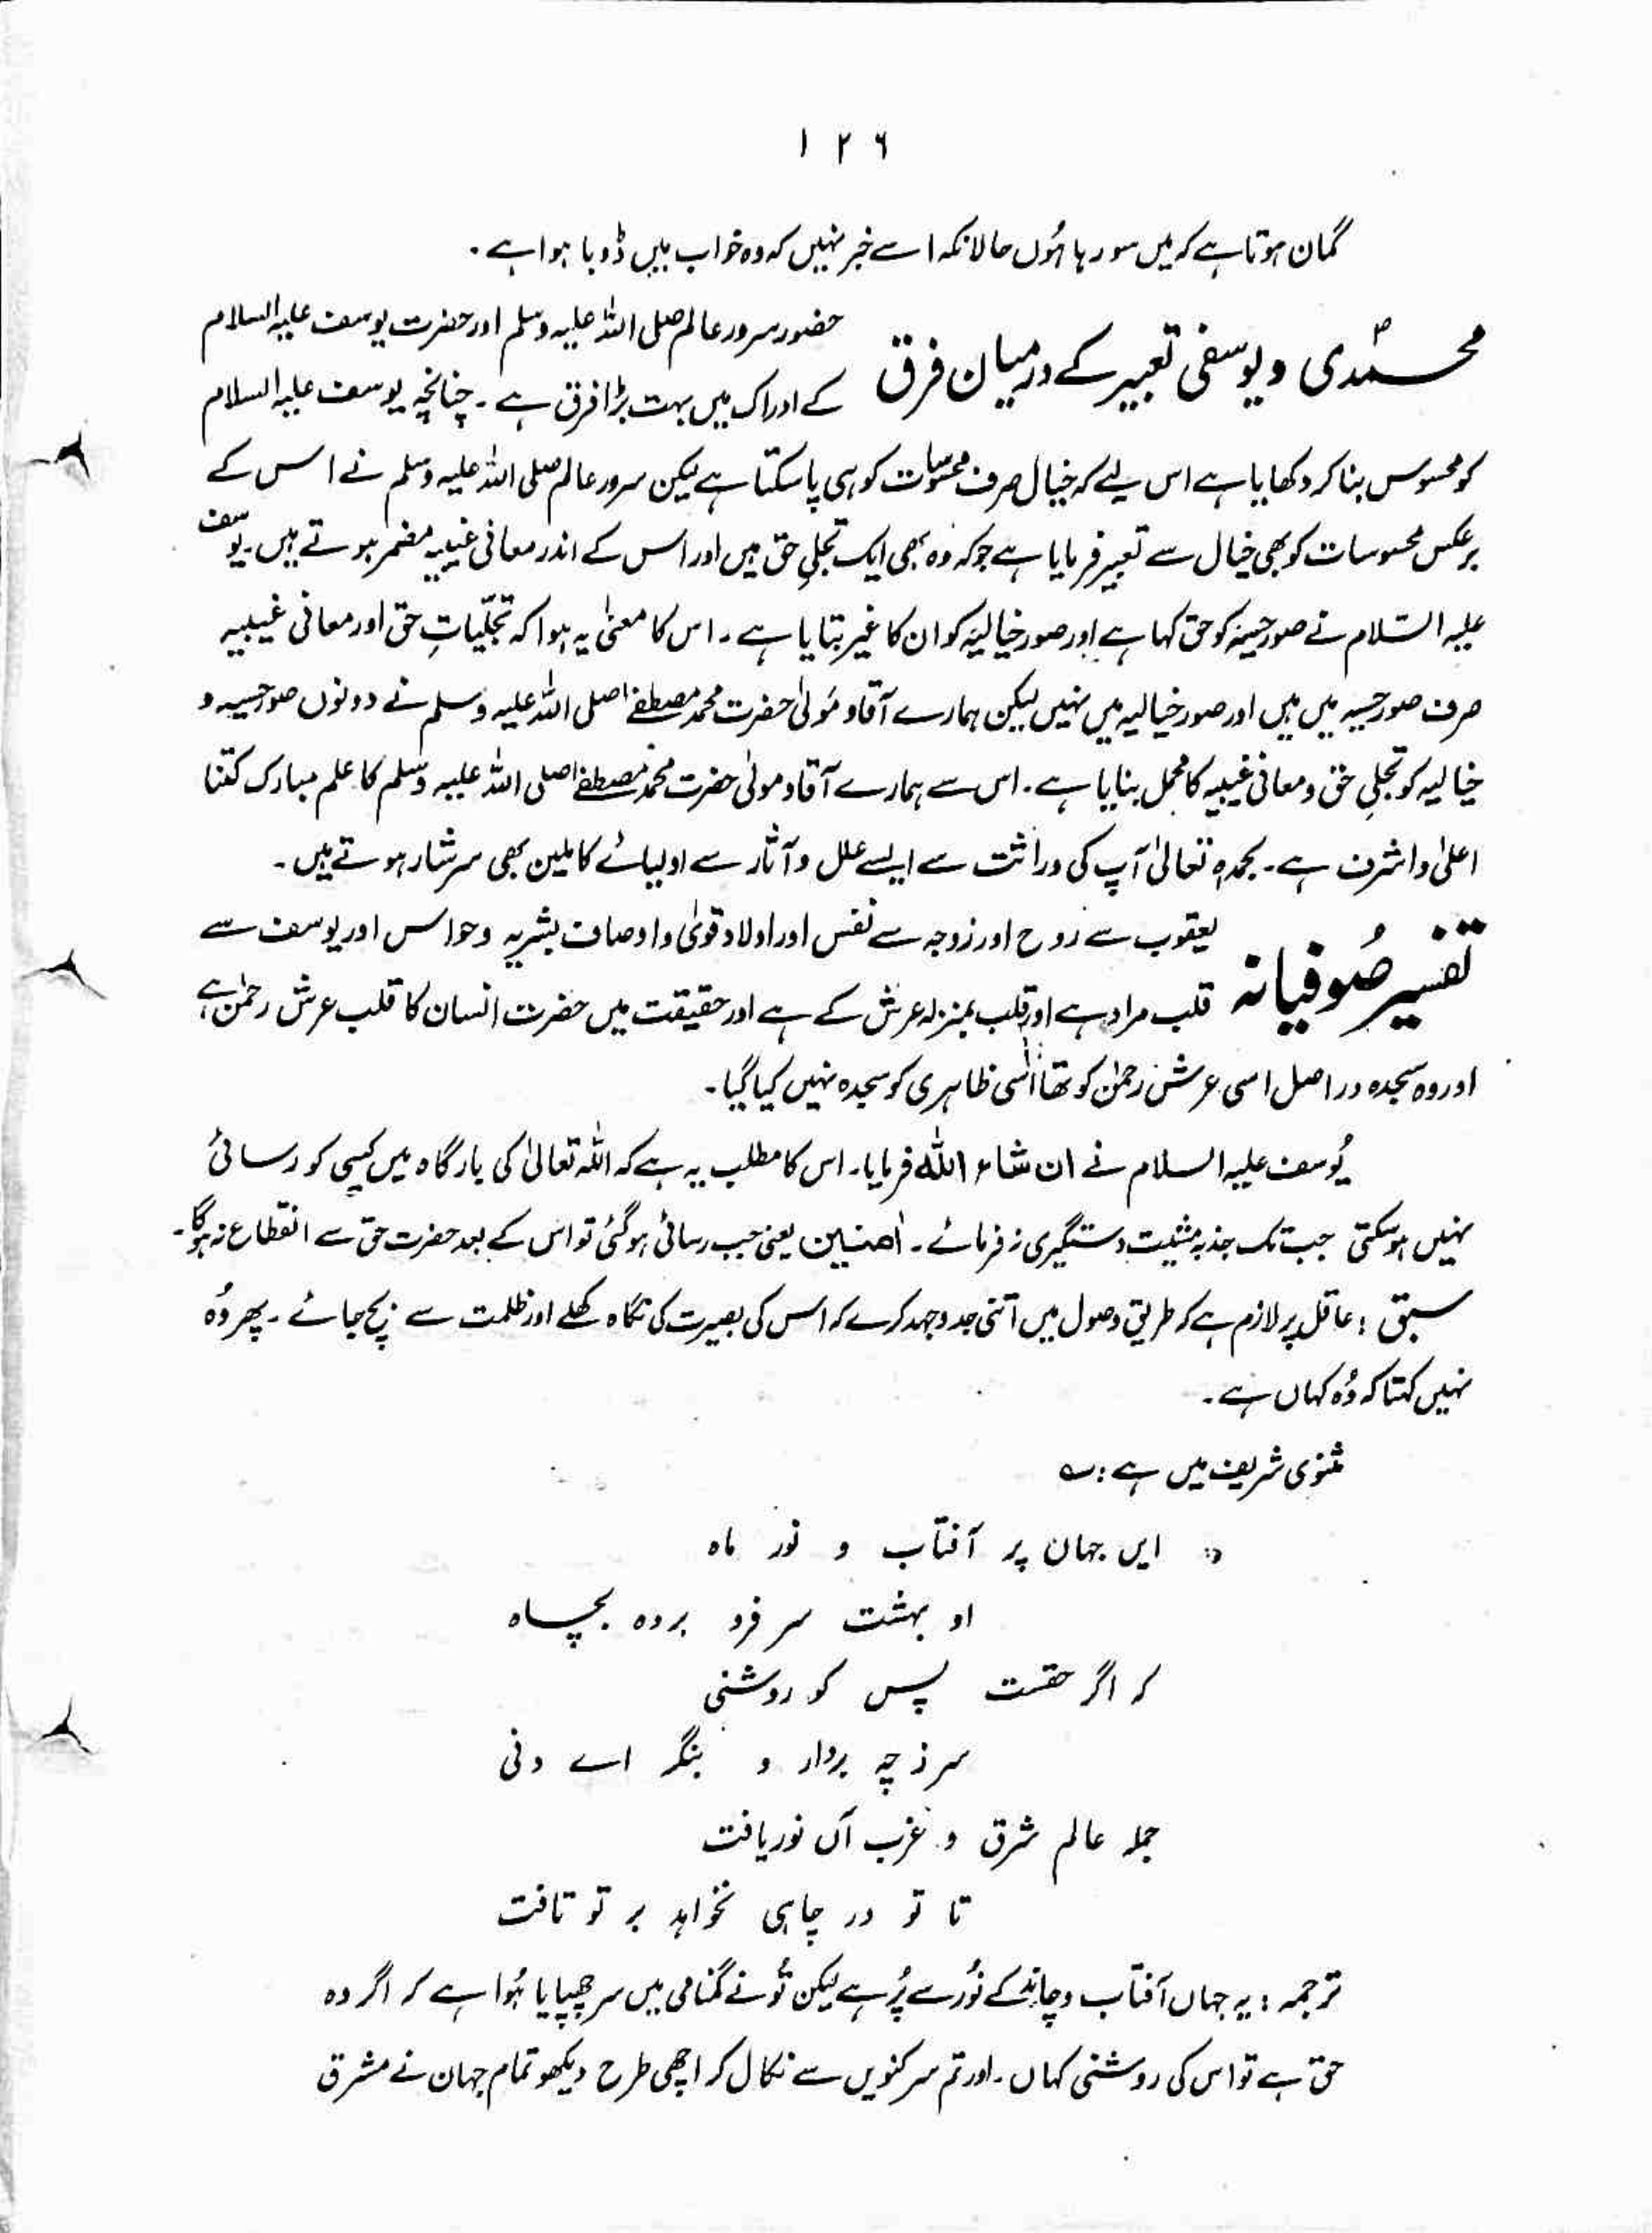 ۱۲۶
گمان ہوتا ہے کہ میں سو رہا ہُوں حالانکہ اسے خبر نہیں کہ وہ خواب میں ڈوبا ہوا ہے ۔
محمدی و یوسفی تعبیر کے درمیان فرق
حضور سرور عالم صلی اللہ علیہ وسلم اور حضرت یوسف علیہ السلام
کے ادراک میں بہت بڑا فرق ہے ۔ چنانچہ یوسف علیہ السلام
کو محسوس بنا کر دکھایا ہے اس لیے کہ خیال صرف محسوسات کو ہی پا سکتا ہے لیکن سرور عالم صلی اللہ علیہ وسلم نے اس کے
برعکس محسوسات کو بھی خیال سے تعبیر فرمایا ہے جو کہ وہ بھی ایک تجلیِ حق ہیں اور اس کے اندر معانی غیبیہ مضمر ہوتے ہیں۔ یوسف
علیہ السّلام نے صور حسیہ کو حق کہا ہے اور صور خیالیہ کو ان کا غیر بتایا ہے ۔ اس کا معنیٰ یہ ہوا کہ تجلّیاتِ حق اور معانی غیبیہ
صرف صور حسیہ میں ہیں اور صور خیالیہ میں نہیں لیکن ہمارے آقا و مَولیٰ حضرت محمد مصطفےٰ صلی اللہ علیہ وسلم نے دونوں صور حسیہ و
خیالیہ کو تجلیِ حق و معانی غیبیہ کا محل بنایا ہے ۔ اس سے ہمارے آقا و مولیٰ حضرت محمد مصطفےٰ صلی اللہ علیہ وسلم کا علم مبارک کتنا
اعلیٰ و اشرف ہے ۔ بحمدہٖ تعالیٰ آپ کی وراثت سے ایسے علل و آثار سے اولیائے کاملین بھی سرشار ہوتے ہیں ۔
تفسیر صُوفیانہ
یعقوب سے روح اور زوجہ سے نفس اور اولاد قویٰ و اوصاف بشریہ و حواس اور یوسف سے
قلب مراد ہے اور قلب بمنزلہ عرش کے ہے اور حقیقت میں حضرت انسان کا قلب عرش رحمٰن ہے
اور وہ سجدہ دراصل اسی عرش رحمٰن کو تھا اسی ظاہری کو سجدہ نہیں کیا گیا ۔
یُوسف علیہ السلام نے ان شاء اللہ فرمایا۔ اس کا مطلب یہ ہے کہ اللہ تعالیٰ کی بارگاہ میں کسی کو رسائی
نہیں ہو سکتی جب تک جذبہ مشیت دستگیری نہ فرمائے ۔ اٰمنین یعنی جب رسائی ہو گئی تو اس کے بعد حضرت حق سے انقطاع نہ ہوگا ۔
سبق : عاقل پر لازم ہے کہ طریق وصول میں اتنی جدوجہد کرے کہ اس کی بصیرت کی نگاہ کھلے اور ظلمت سے بچ جائے ۔ پھر وُہ
نہیں کہتا کہ وُہ کہاں ہے ۔
مثنوی شریف میں ہے : ؎
این جہان پر آفتاب و نور ماہ
او بہشت سر فرو بردہ بچاہ
کہ اگر حقست پس کو روشنی
سر ز چہ بردار و بنگر اے دنی
جملہ عالم شرق و غرب آں نور یافت
تا تو در چاہی نخواہد بر تو تافت
ترجمہ : یہ جہاں آفتاب و چاند کے نُور سے پُر ہے لیکن تُو نے گمنامی میں سر چھپایا ہُوا ہے کہ اگر وہ
حق ہے تو اس کی روشنی کہاں ۔ اور تم سر کنویں سے نکال کر اچھی طرح دیکھو تمام جہان نے مشرق